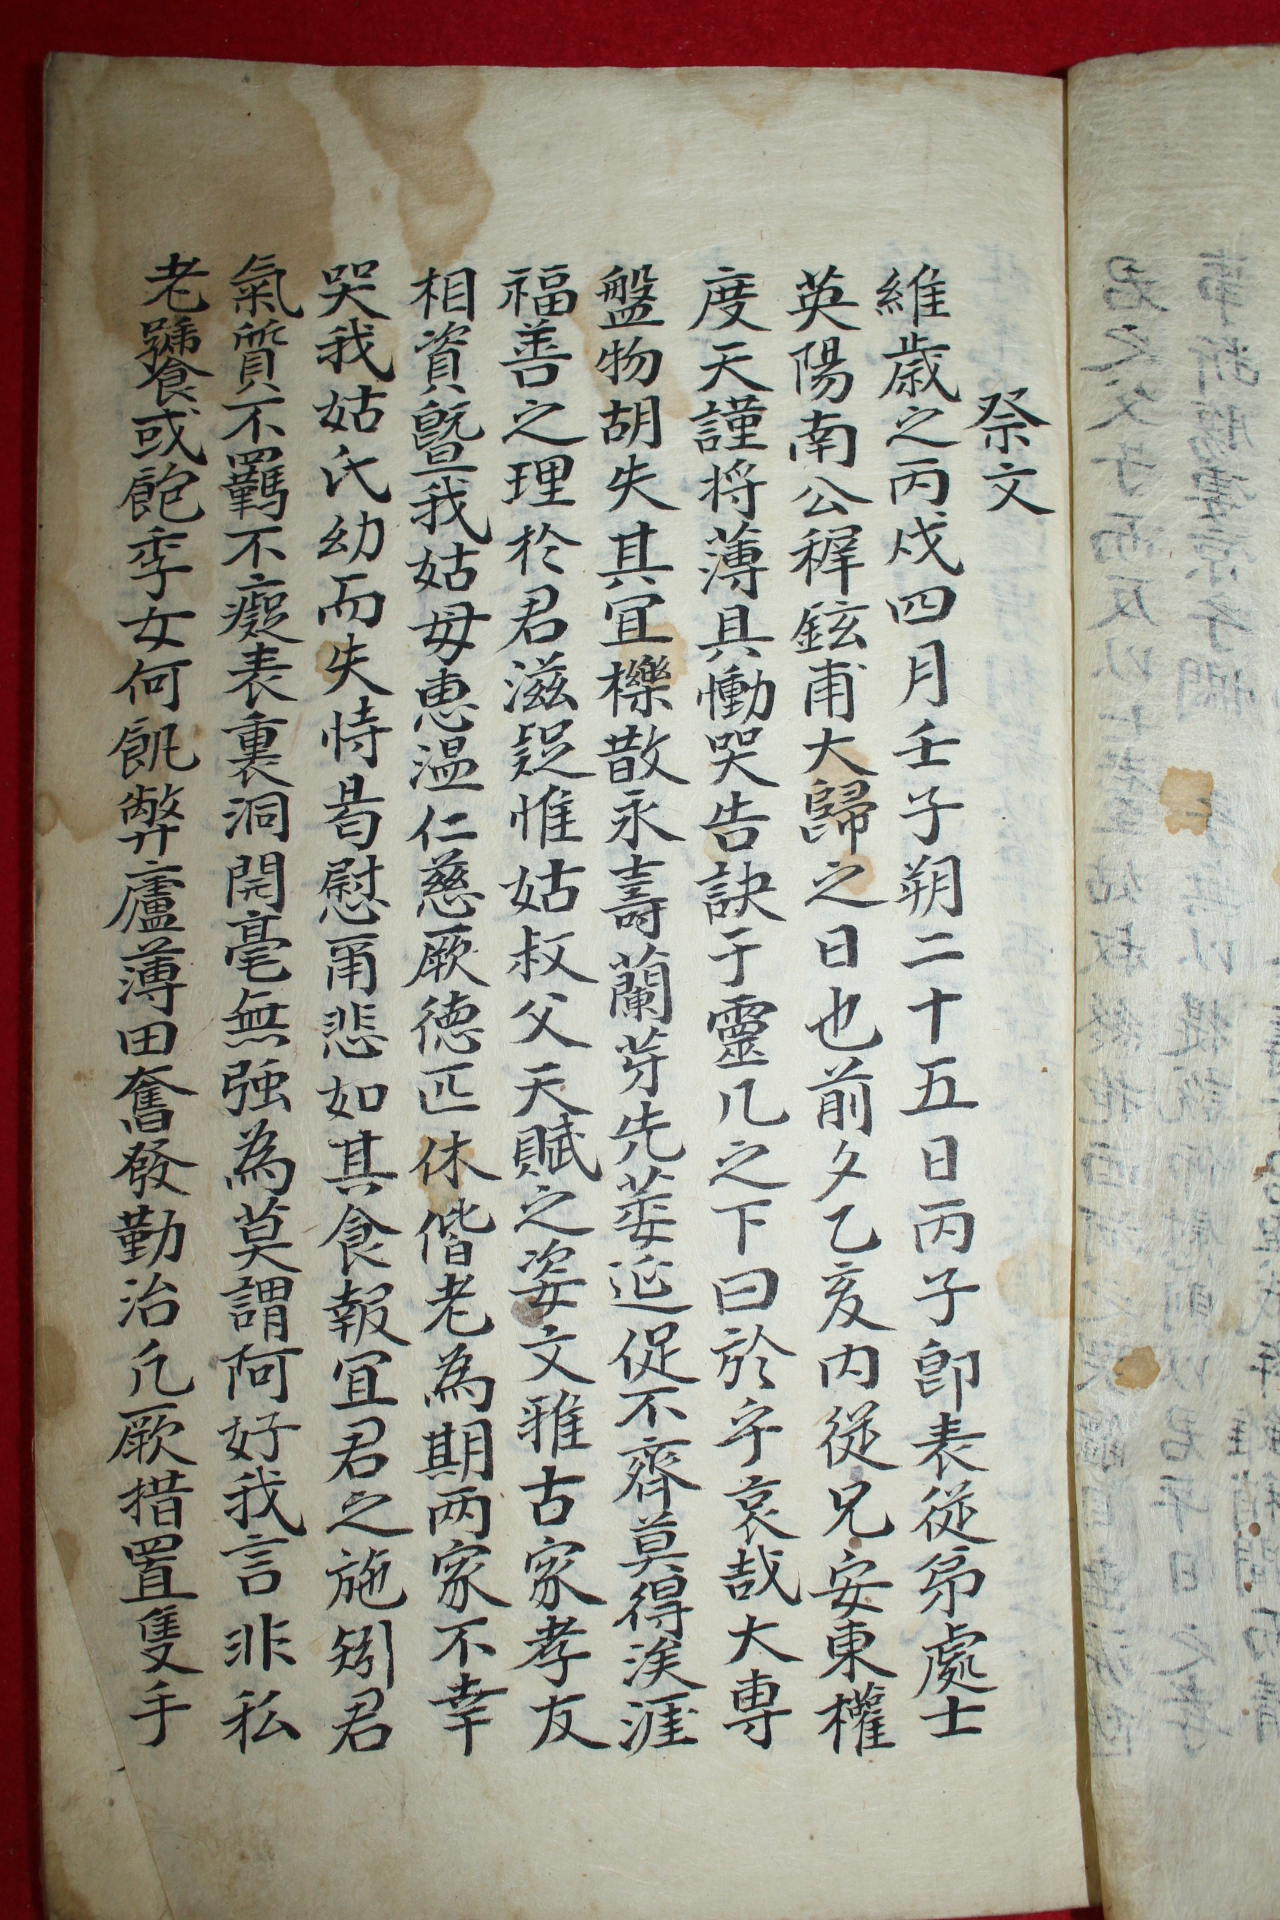 祭文
維歲之丙戌四月壬子朔二十五日丙子卽表從弟處士
英陽南公稺鉉甫大歸之日也前夕乙亥內從兄安東權
度天謹將薄具慟哭告訣于靈几之下曰於乎哀哉大專
盤物胡失其宜櫟散永壽蘭芽先萎延促不齊莫得涘涯
福善之理於君滋疑惟姑叔父天賦之姿文雅古家孝友
相資曁我姑母惠溫仁慈厥德匹休偕老為期兩家不幸
哭我姑氏幼而失恃曷慰甭悲如其食報宜君之施矧君
氣質不羈不癡表裏洞開毫無强為莫謂阿好我言非私
老饕或飽季女何飢弊廬薄田奮發勤治凡厥措置隻手